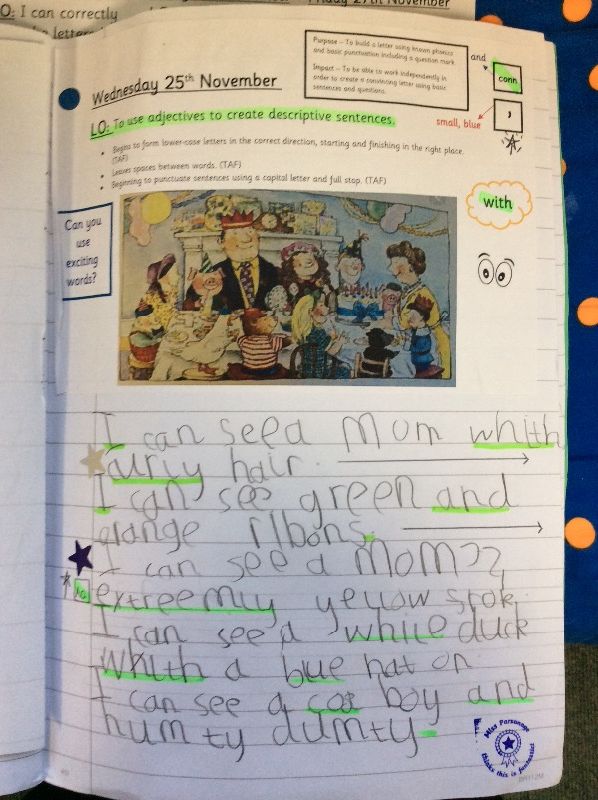 O: I can correctly
Friday 27th November
Purpose – To build a letter using known phonics
and basic punctuation including a question mark
Impact – To be able to work independently in
order to create a convincing letter using basic
sentences and questions.
and
conn
Wednesday 25th November
LO: To use adjectives to create descriptive sentences.
small, blue
,
Begins to form lower-case letters in the correct direction, starting and finishing in the right place.
(TAF)
Leaves spaces between words. (TAF)
Beginning to punctuate sentences using a capital letter and full stop. (TAF)
with
Can you
use
exciting
words?
I can seea Mom whith
curly hair.
I can see green and
orange ribons.
I can see a Mom
extreemly yellow
I can see a white duck
whith a blue hat on
I can see a cat boy and
humty dumty.
Miss Parsonage
thinks this is fantastic!